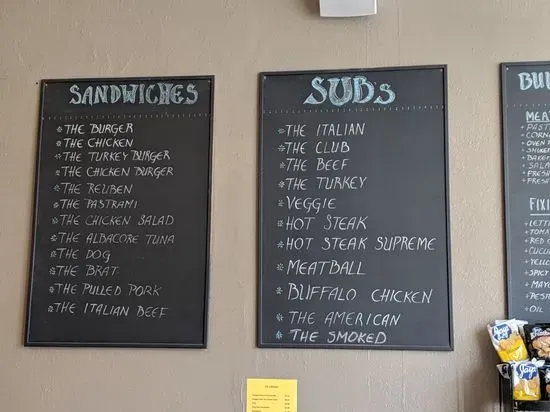 SANDWICHES
* THE BURGER
* THE CHICKEN
* THE TURKEY BURGER
* THE CHICKEN BURGER
* THE REUBEN
* THE PASTRAMI
* THE CHICKEN SALAD
* THE ALBACORE TUNA
* THE DOG
* THE BRAT
* THE PULLED PORK
* THE ITALIAN BEEF
SUBS
* THE ITALIAN
* THE CLUB
* THE BEEF
* THE TURKEY
* VEGGIE
* HOT STEAK
* HOT STEAK SUPREME
* MEATBALL
* BUFFALO CHICKEN
* THE AMERICAN
* THE SMOKED
BU
MEA
+ PAST
+ CORN
+ OVEN
+ SMOKE
+ BAKE
+ SALA
+ FRESH
+ FRES
FIXI
+ LETT
+ TOMA
+ RED
+ CUCU
+ YELLO
+ SPICY
+ MAYO
+ PESTO
+ OIL
Jays
Jays